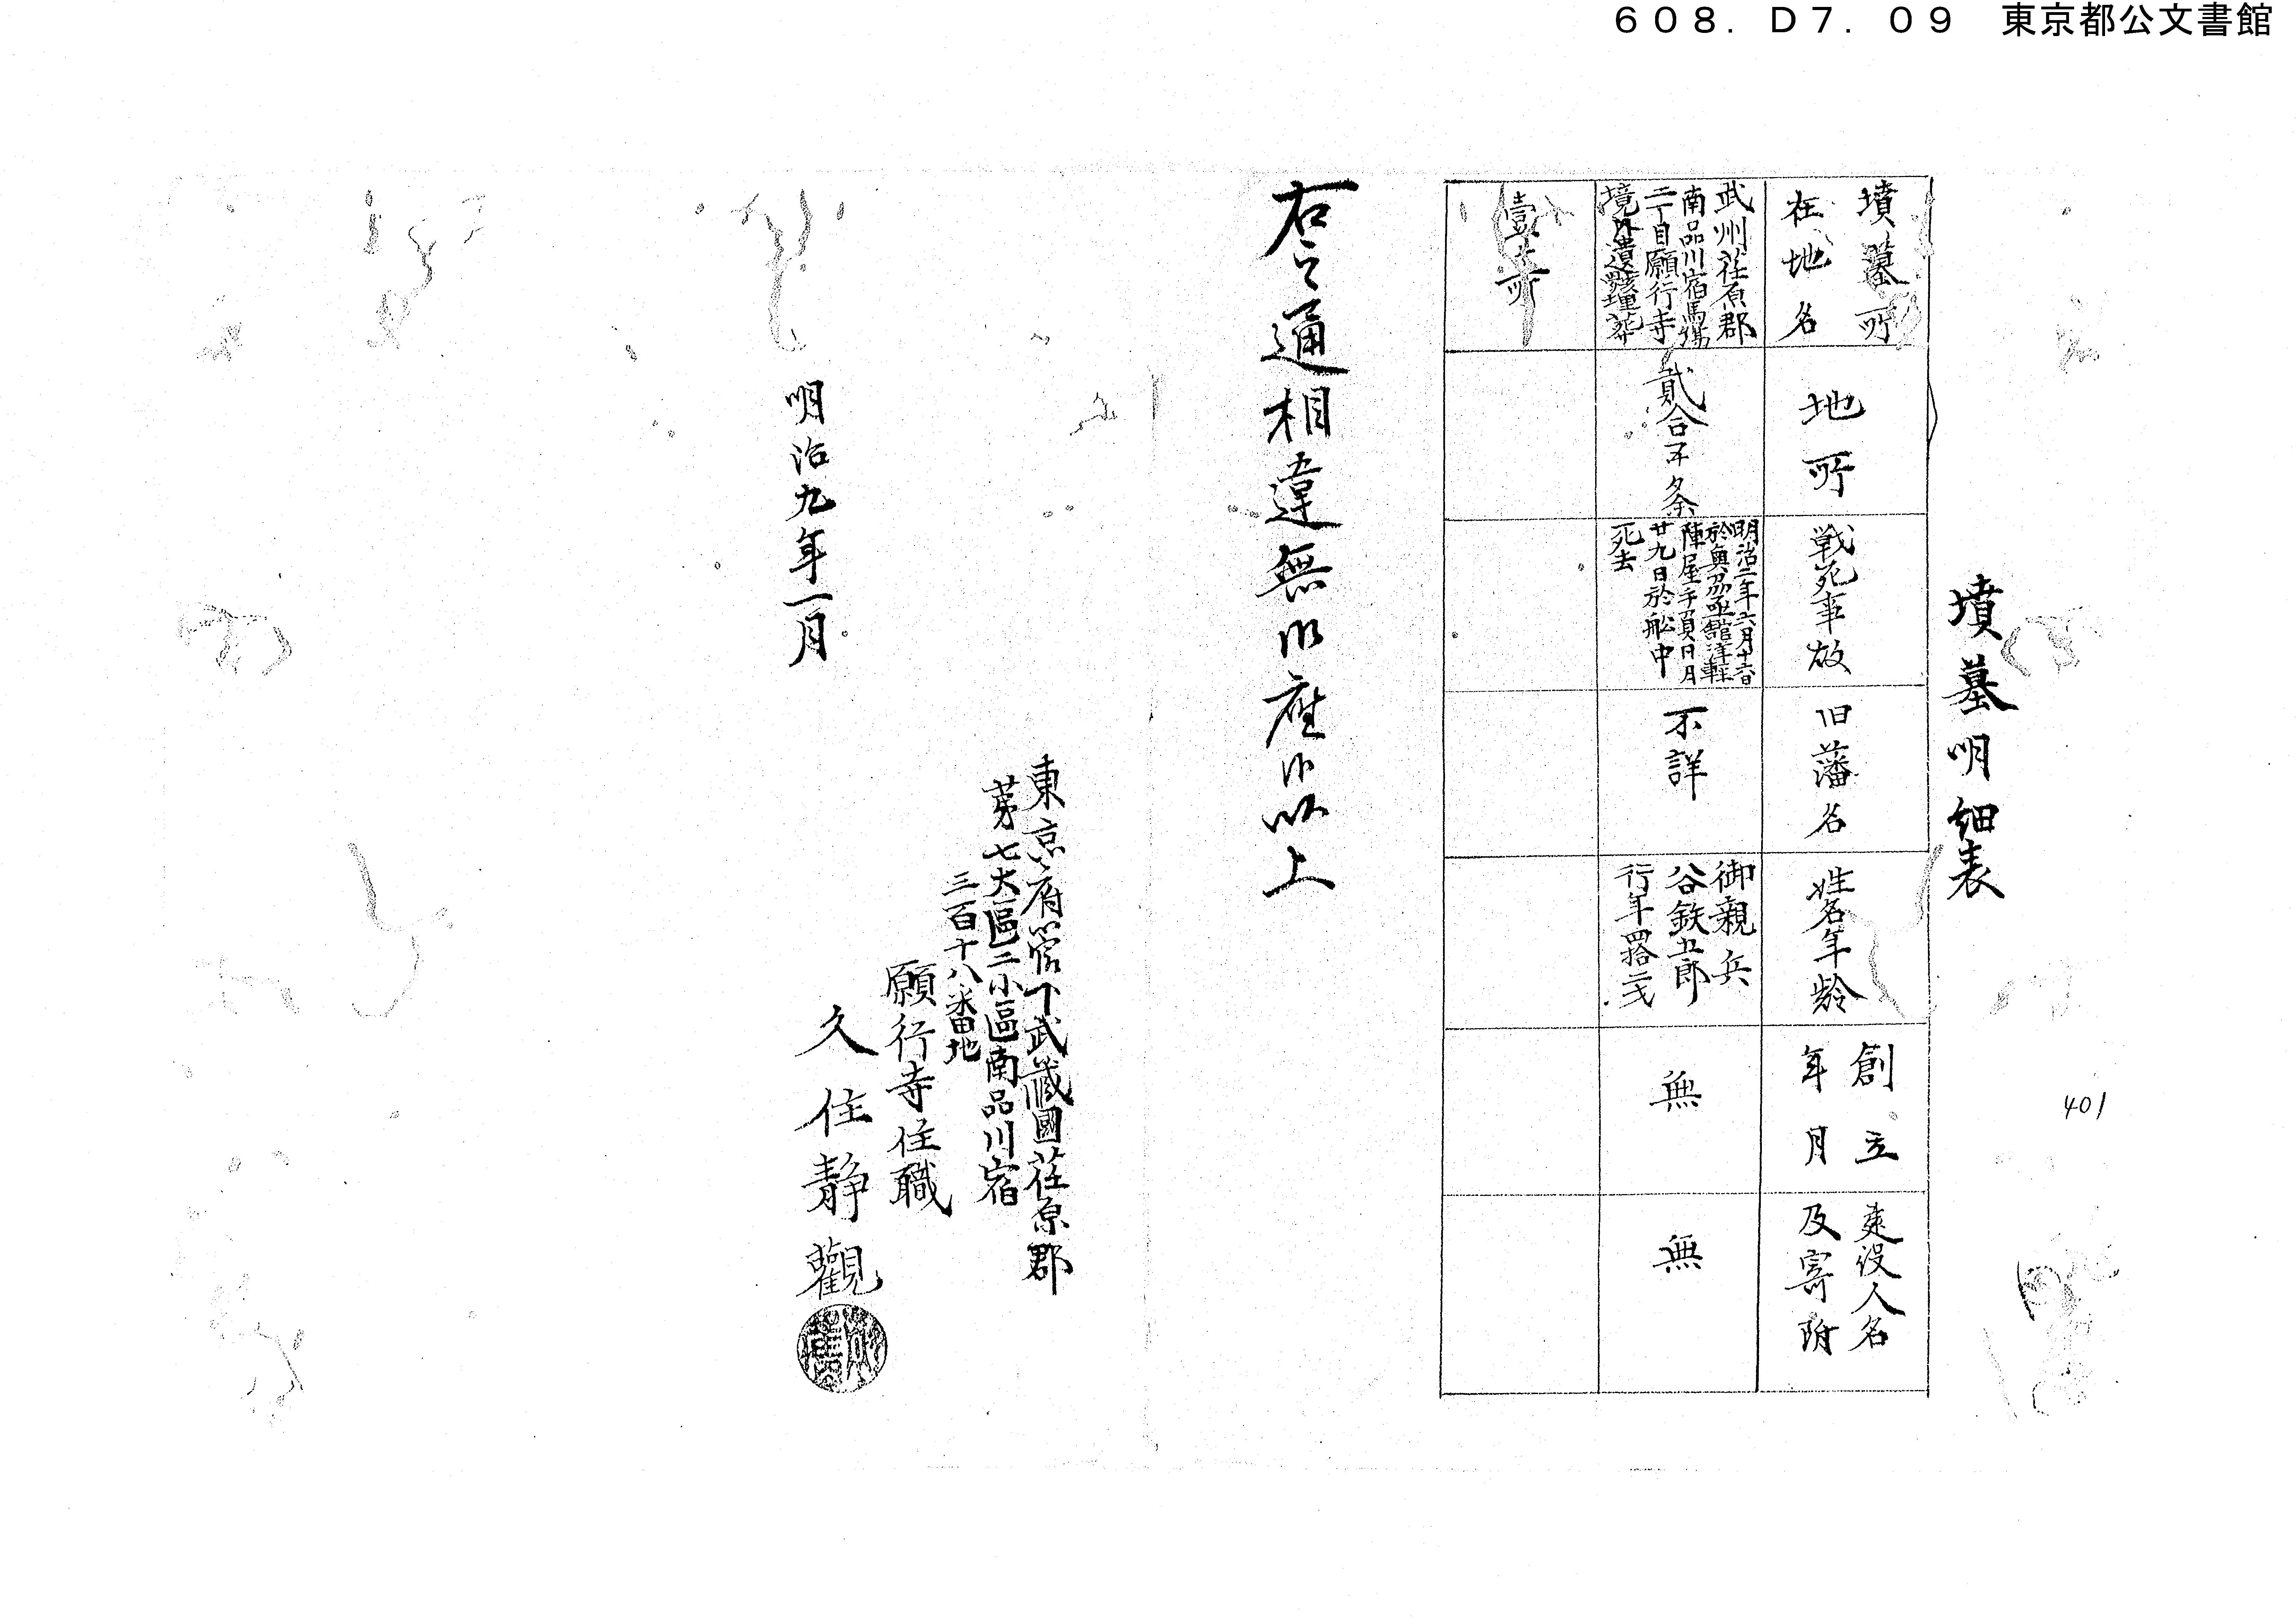 608. D7. 09 東京都公文書館
墳墓明細表
墳墓所
在地名
地所
戦死事故
旧藩名
姓名年齢
創立
年月
建设人名
及寄附
武州荏原郡
南品川宿馬場
二丁目願行寺
境外遺骸埋葬
貳合不条
明治二年六月十六日
於奥州函館津軽
陣屋手負同月
廿九日於船中
死去
不詳
御親兵
谷鉄五郎
行年四拾二戈
無
無
壹ケ所
右之通相違無御座候以上
明治九年一月
東京府管下武藏國荏原郡
第七大區二小區南品川宿
三百十八番地
願行寺住職
久住静觀
401